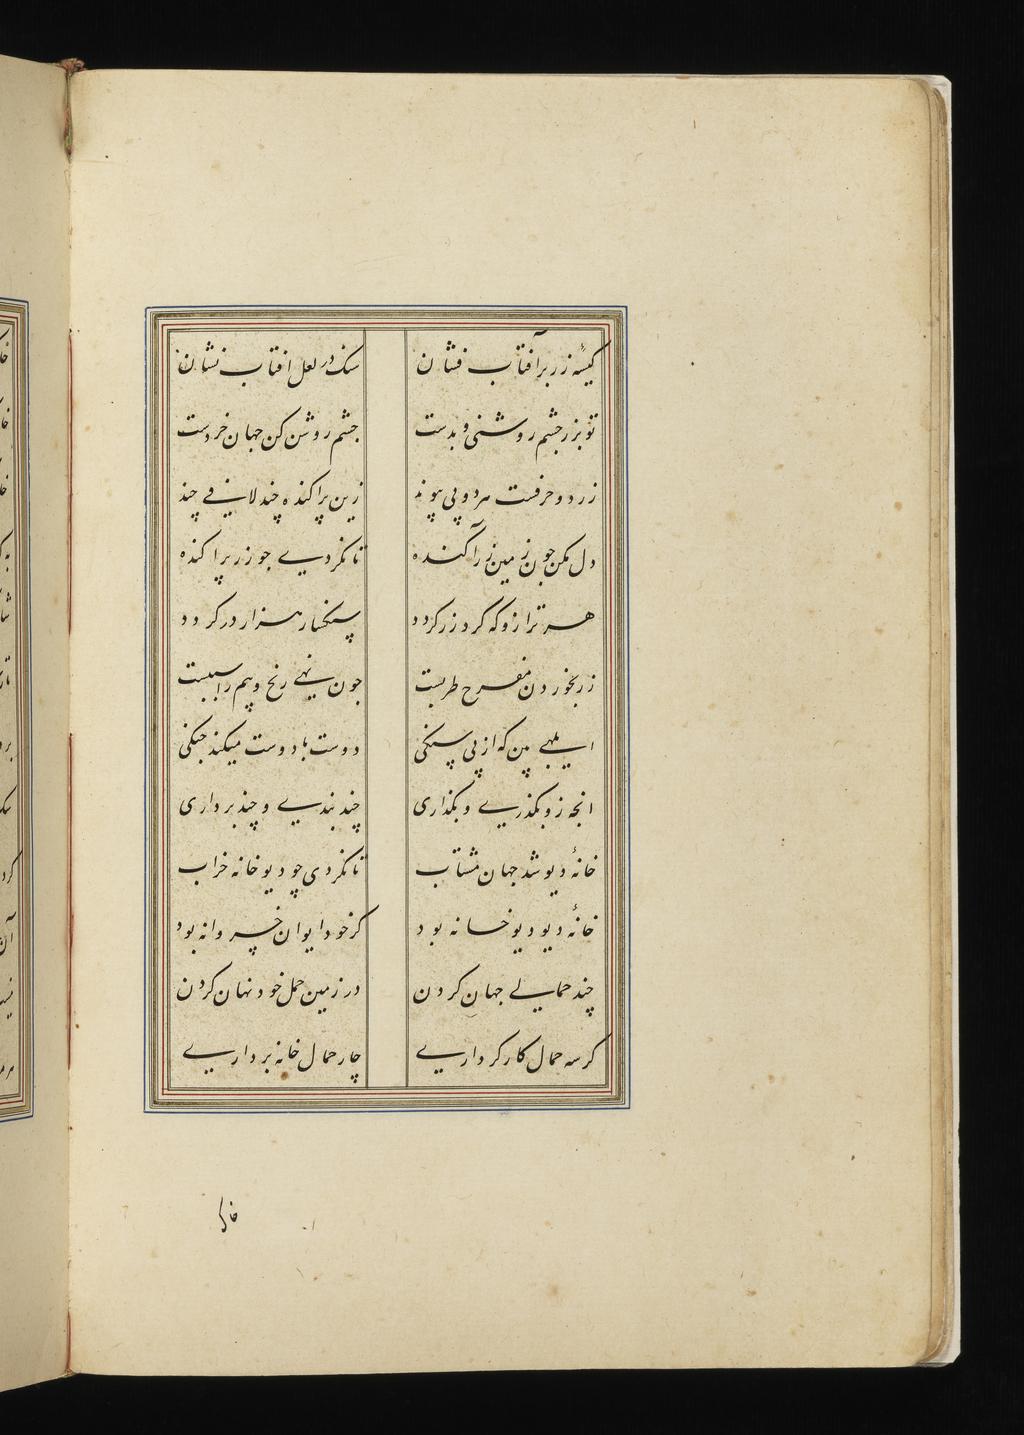 کیسهٔ زر برآفتاب فشان سنک در لعل افتاب نشان
تو بزر جشم روشنی و بدست جشم روشن کن جهان خردست
زر دو حرفست هر دو بی پیوند زین پراکنده چند لافی چند
دل مکن جون زمین زرآکنده تا نکردی جو زر پراکنده
هر ترازو که کرد زر کردد سنکسار هزار در کردد
زر بخوردن مفرح طربست جون نهی رنج و بیم را سببست
ابلهی بین که از پی سنکی دوست با دوست میکند جنکی
انجه زو بکذری و بکذاری چند بندی و چند برداری
خانهٔ دیو شد جهان مشتاب تا نکردی چو دیو خانه خراب
خانهٔ دیو دیو خانه بود کر خود ایوان خسروانه بود
چند حمالی جهان کردن در زمین حمل خود نهان کردن
کر سه حمال کارکر داری چار حمال خانه برداری
خاک